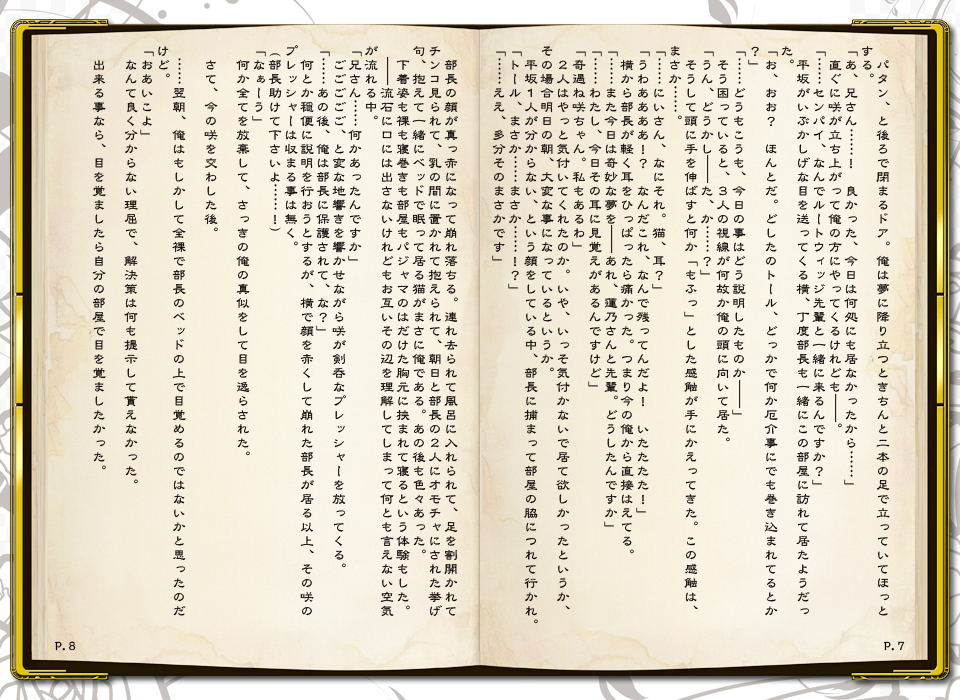 パタン、と後ろで閉まるドア。俺は夢に降り立つときちんと二本の足で立っていてほっと
する。
「あ、兄さん……！　良かった、今日は何処にも居なかったから……」
　直ぐに咲が立ち上がって俺の方にやってくるけれども――。
「……センパイ、なんでルートウィッジ先輩と一緒に来るんですか？」
　平坂がいぶかしげな目を送ってくる横、丁度部長も一緒にこの部屋に訪れて居たようだっ
た。
「お、おお？　ほんとだ。どしたのトール、どっかで何か厄介事にでも巻き込まれてるとか
？」
「……どうもこうも、今日の事はどう説明したものか――」
　そう困っていると、３人の視線が何故か俺の頭に向いて居た。
「うん、どうかし――た、か……？」
　そうして頭に手を伸ばすと何か「もふっ」とした感触が手にかえってきた。この感触は、
まさか……。
「……にいさん、なにそれ。猫、耳？」
「うわああああ！？　なんだこれ、なんで残ってんだよ！　いたたた！」
　横から部長が軽く耳をひっぱったら痛かった。つまり今の俺から直接はえてる。
「……また今日は奇妙な夢を――あれ、蓮乃さんと先輩。どうしたんですか」
「……わたし、今日その耳に見覚えがあるんですけど」
「奇遇ね咲ちゃん。私もあるわ」
　２人はやっと気付いてくれたのか。いや、いっそ気付かないで居て欲しかったというか、
その場合明日の朝、大変な事になっているというか。
　平坂１人が分からない、という顔をしている中、部長に捕まって部屋の脇につれて行かれ。
「トール、まさか……まさか……！？」
「……ええ、多分そのまさかです」
P.7
　部長の顔が真っ赤になって崩れ落ちる。連れ去られて風呂に入れられて、足を割開かれて
チンコ見られて、乳の間に置かれて抱えられて、朝日と部長の２人にオモチャにされた挙げ
句、抱えて一緒にベッドで眠って居る猫がまさに俺である。あの後も色々あった。
　下着姿も裸も寝巻きも部屋もパジャマのはだけた胸元に挟まれて寝るという体験もした。
　――流石に口には出さないけれどもお互いその辺を理解してしまって何とも言えない空気
が流れる中。
「兄さん……何かあったんですか」
　ごごごごご、と変な地響きを響かせながら咲が剣呑なプレッシャーを放ってくる。
「……あの後、俺は部長に保護されて、な？」
　何とか穏便に説明を行おうとするが、横で顔を赤くして崩れた部長が居る以上、その咲の
プレッシャーは収まる事は無く。
（部長助けて下さいよ……！）
「なぁーう」
　何か全てを放棄して、さっきの俺の真似をして目を逸らされた。

　さて、今の咲を交わした後。

　……翌朝、俺はもしかして全裸で部長のベッドの上で目覚めるのではないかと思ったのだ
けど。
「おあいこよ」
　なんて良く分からない理屈で、解決策は何も提示して貰えなかった。

　出来る事なら、目を覚ましたら自分の部屋で目を覚ましたかった。
P.8